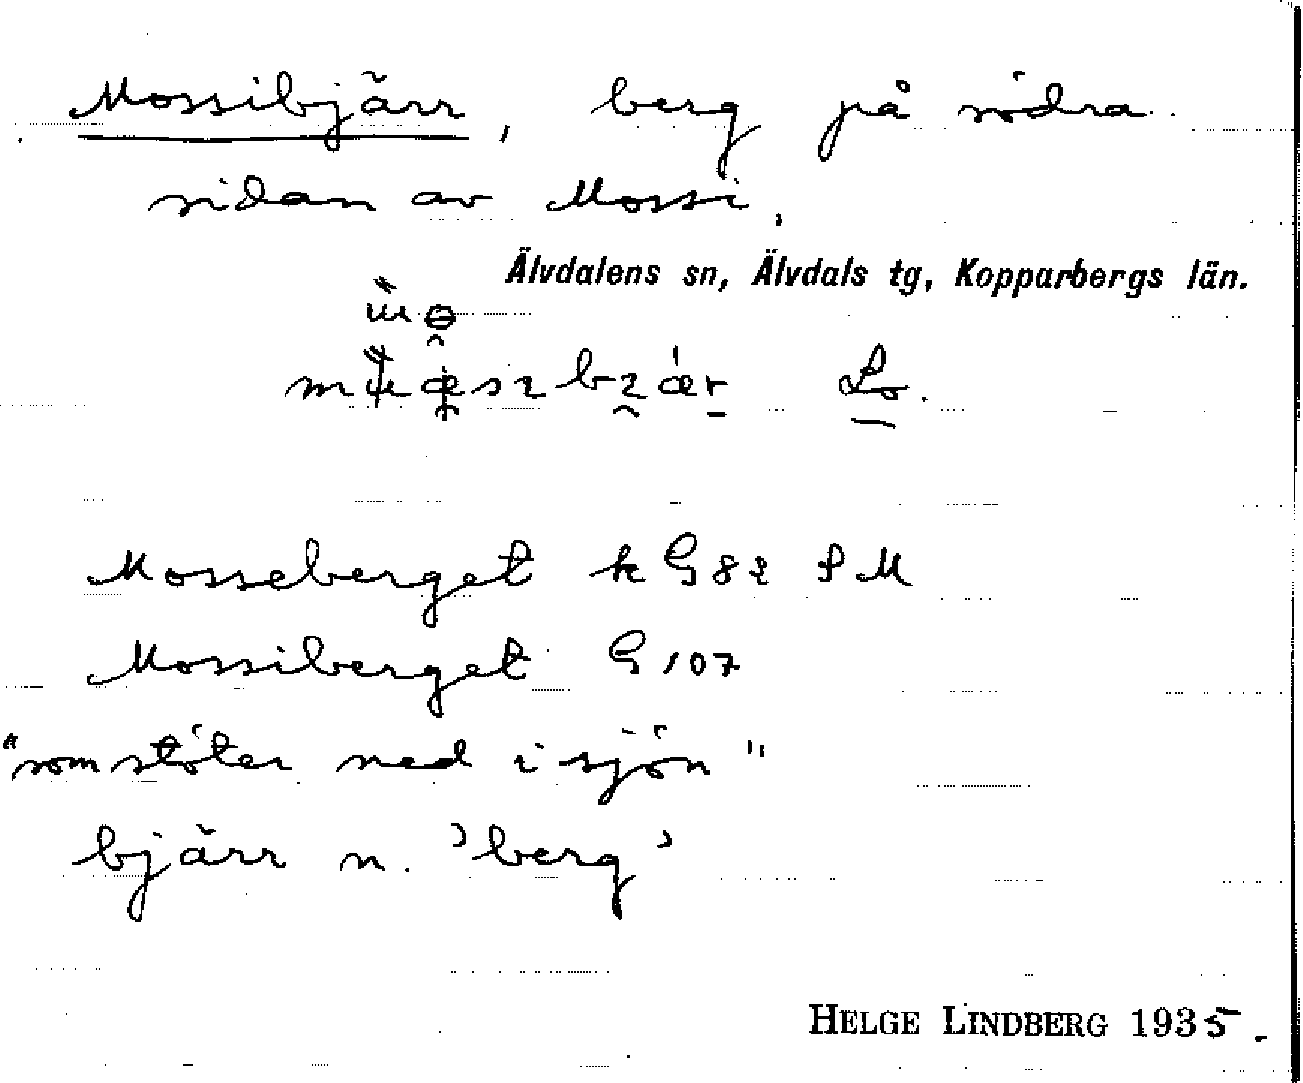 Mossibjärr, berg på södra
sidan av Mossi,
Älvdalens sn, Älvdals tg, Kopparbergs län.
Lo.
Mosseberget k G 82 S M
Mossiberget G 107
"som stöter ned i sjön"
bjärr n. 'berg'
HELGE LINDBERG 1935.